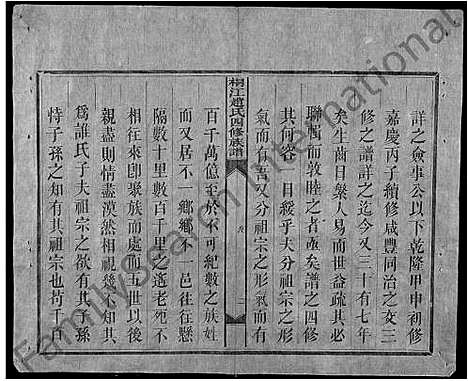 詳之僉事公以下乾隆甲申初修
嘉慶丙子續修咸豐同治之交三
修之譜詳之迄今又三十有七年
矣生齒日繁人易而世益疏其必
聯輯而敦睦之者亟矣譜之四修
其何容目緩乎夫分祖宗之形
氣而有吾又分祖宗之形氣而有
桐江趙氏四修族譜
百千萬億至於不可紀數之族姓
而又居不一鄉鄉不一邑往往懸
隔數十里數百千里之遙老死不
相往來即聚族而處而五世以後
親盡則情盡漠然相視幾不知其
為誰氏子夫祖宗之欲有其子孫
恃子孫之知有其祖宗也苟千
Familypedia an international